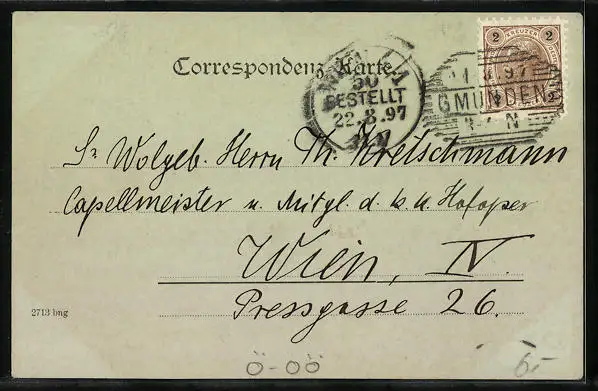 Correspondenz-Karte.
2 KREUZER 2
2
WIEN
50
BESTELLT
22.8.97
97
GMUNDEN
N
Sr. Wolgeb. Herrn Th. Kretschmann
Capellmeister u. Mitgl. d. k. u. Hofoper
Wien, IV.
Pressgasse 26.
2713 bng
Ö-OÖ
6.-